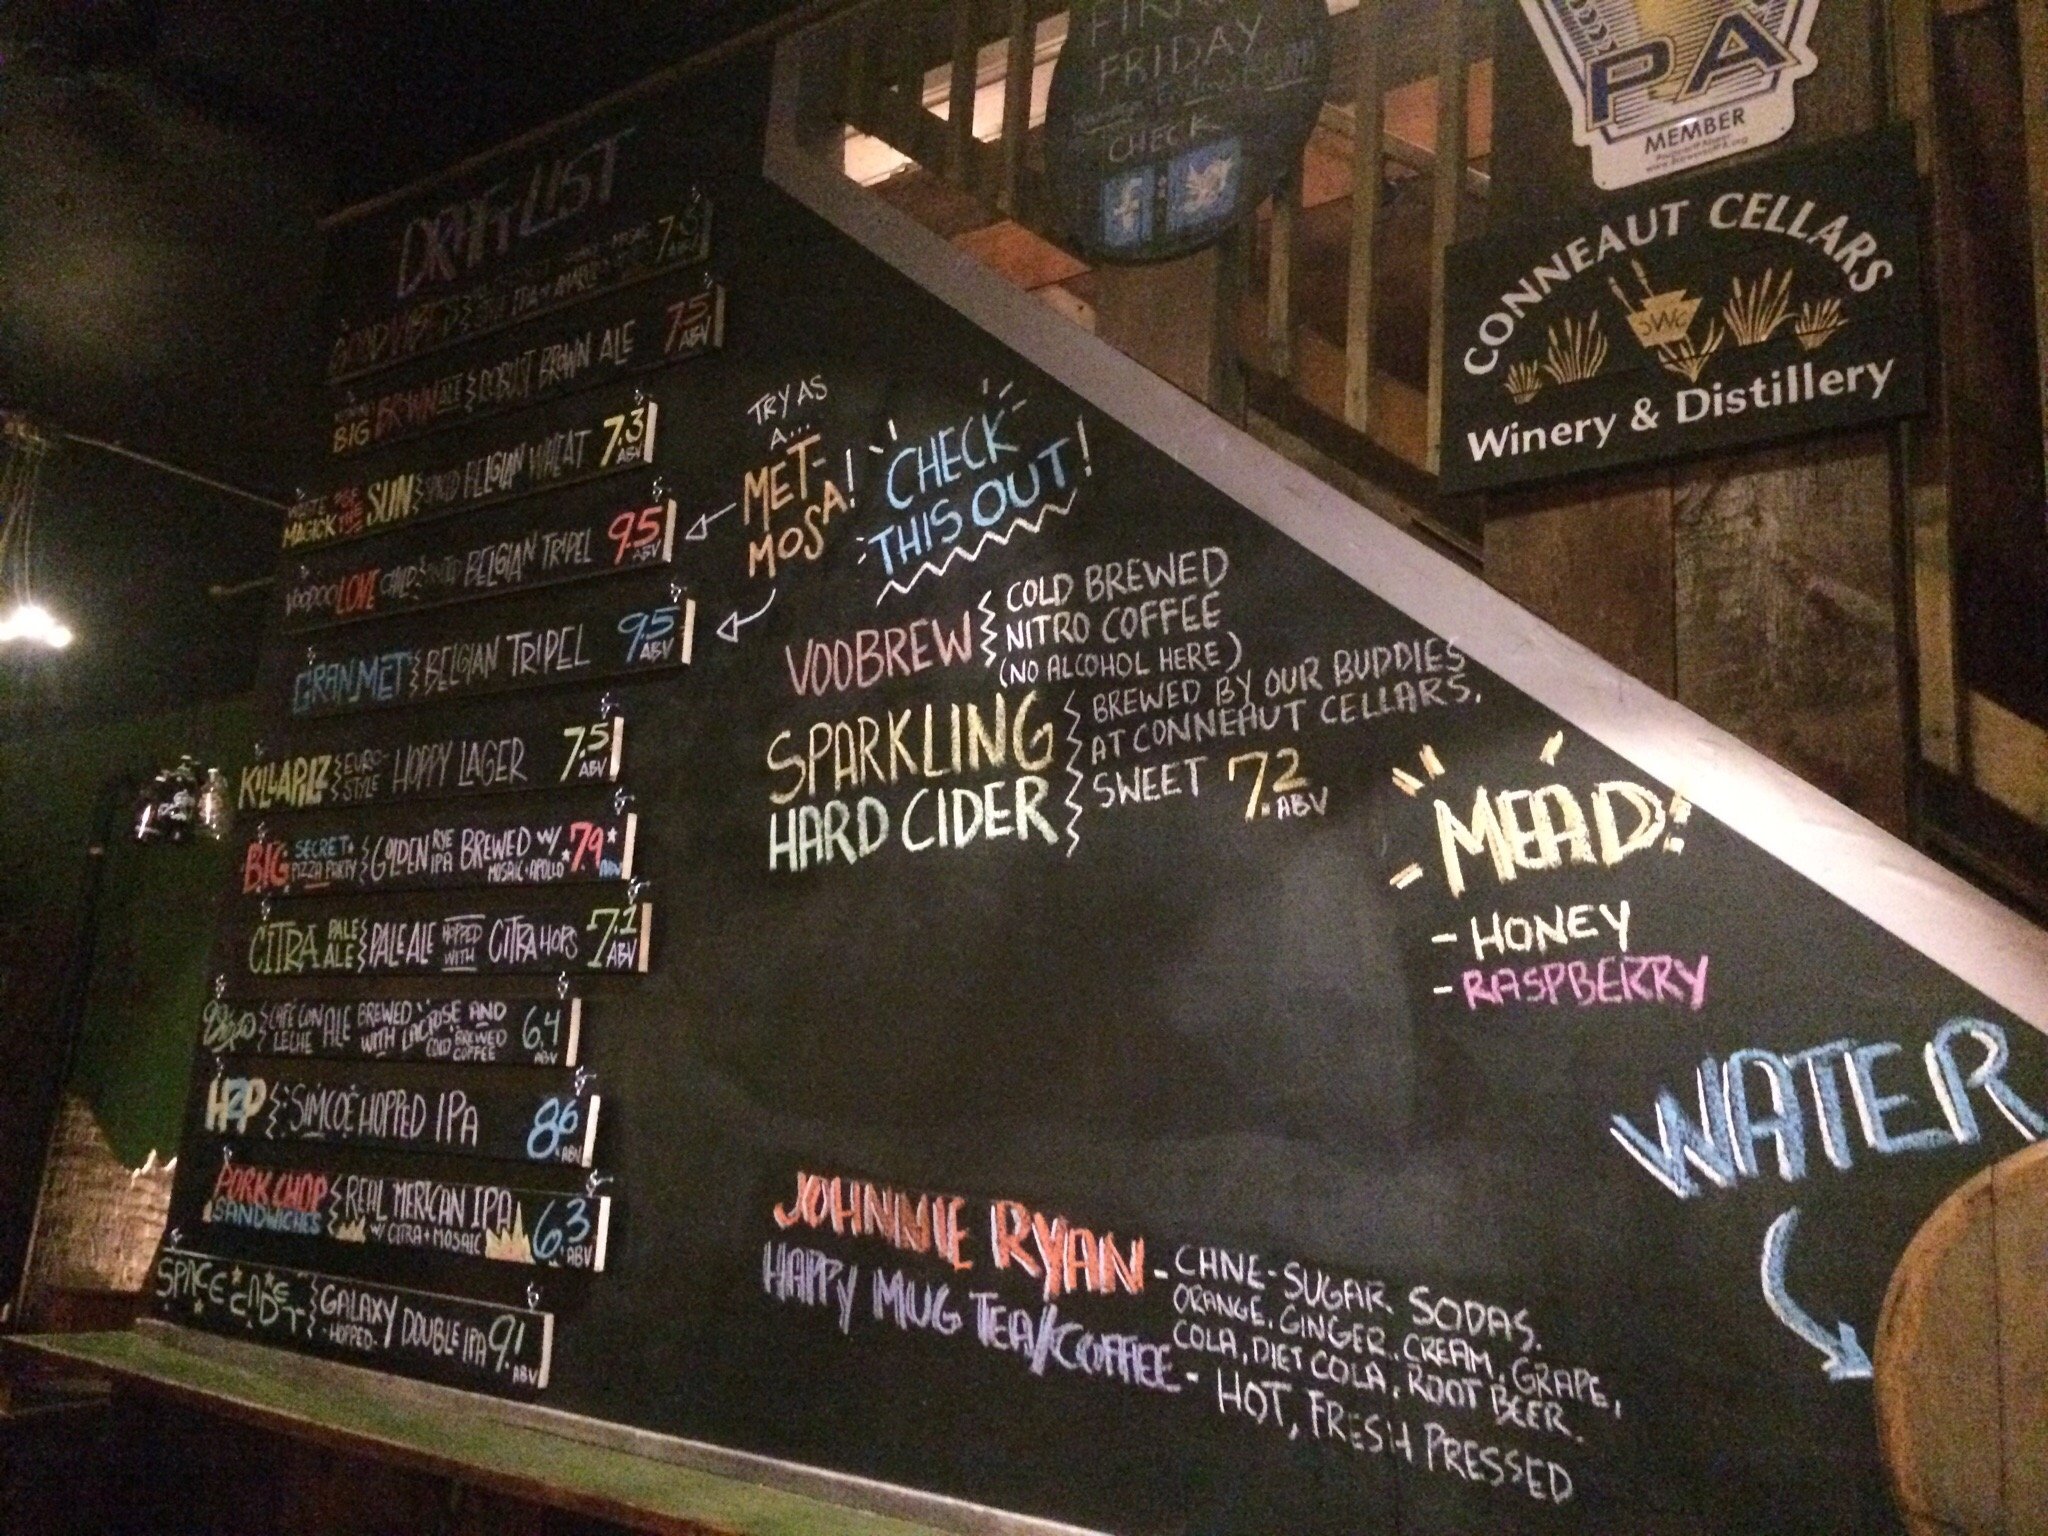 FRIDAY
CHECK
f
PA
MEMBER
CONNEAUT CELLARS
SWC
Winery & Distillery
DRAFT LIST
7.5 ABV
BIG BROWN ALE ROBUST BROWN ALE 7.5 ABV
WHITE MAGICK OF THE SUN SPICED BELGIAN WHEAT 7.3 ABV
VOODOO LOVE CHILD BELGIAN TRIPEL 9.5 ABV
GRAN MET BELGIAN TRIPEL 9.5 ABV
KILLAPILZ EURO-STYLE HOPPY LAGER 7.5 ABV
BIG SECRET PIZZA PARTY GOLDEN RYE IPA BREWED W/ MOSAIC + APOLLO 7.9 ABV
CITRA PALE ALE PALE ALE HOPPED WITH CITRA HOPS 7.1 ABV
CAFÉ CON LECHE ALE BREWED WITH LACTOSE AND COLD BREWED COFFEE 6.4 ABV
SIMCOE HOPPED IPA 8.6 ABV
PORK CHOP SANDWICHES REAL MERICAN IPA W/ CITRA + MOSAIC 6.3 ABV
SPACE CADET GALAXY -HOPPED- DOUBLE IPA 9.1 ABV
TRY AS
A...
MET-
MOSA!
CHECK
THIS OUT!
VOOBREW
COLD BREWED
NITRO COFFEE
(NO ALCOHOL HERE)
SPARKLING
HARD CIDER
BREWED BY OUR BUDDIES
AT CONNEAUT CELLARS.
SWEET 7.2 ABV
MEAD!
- HONEY
- RASPBERRY
WATER
JOHNNIE RYAN - CANE-SUGAR SODAS.
ORANGE, GINGER, CREAM, GRAPE,
COLA, DIET COLA, ROOT BEER.
HAPPY MUG TEA/COFFEE - HOT, FRESH PRESSED